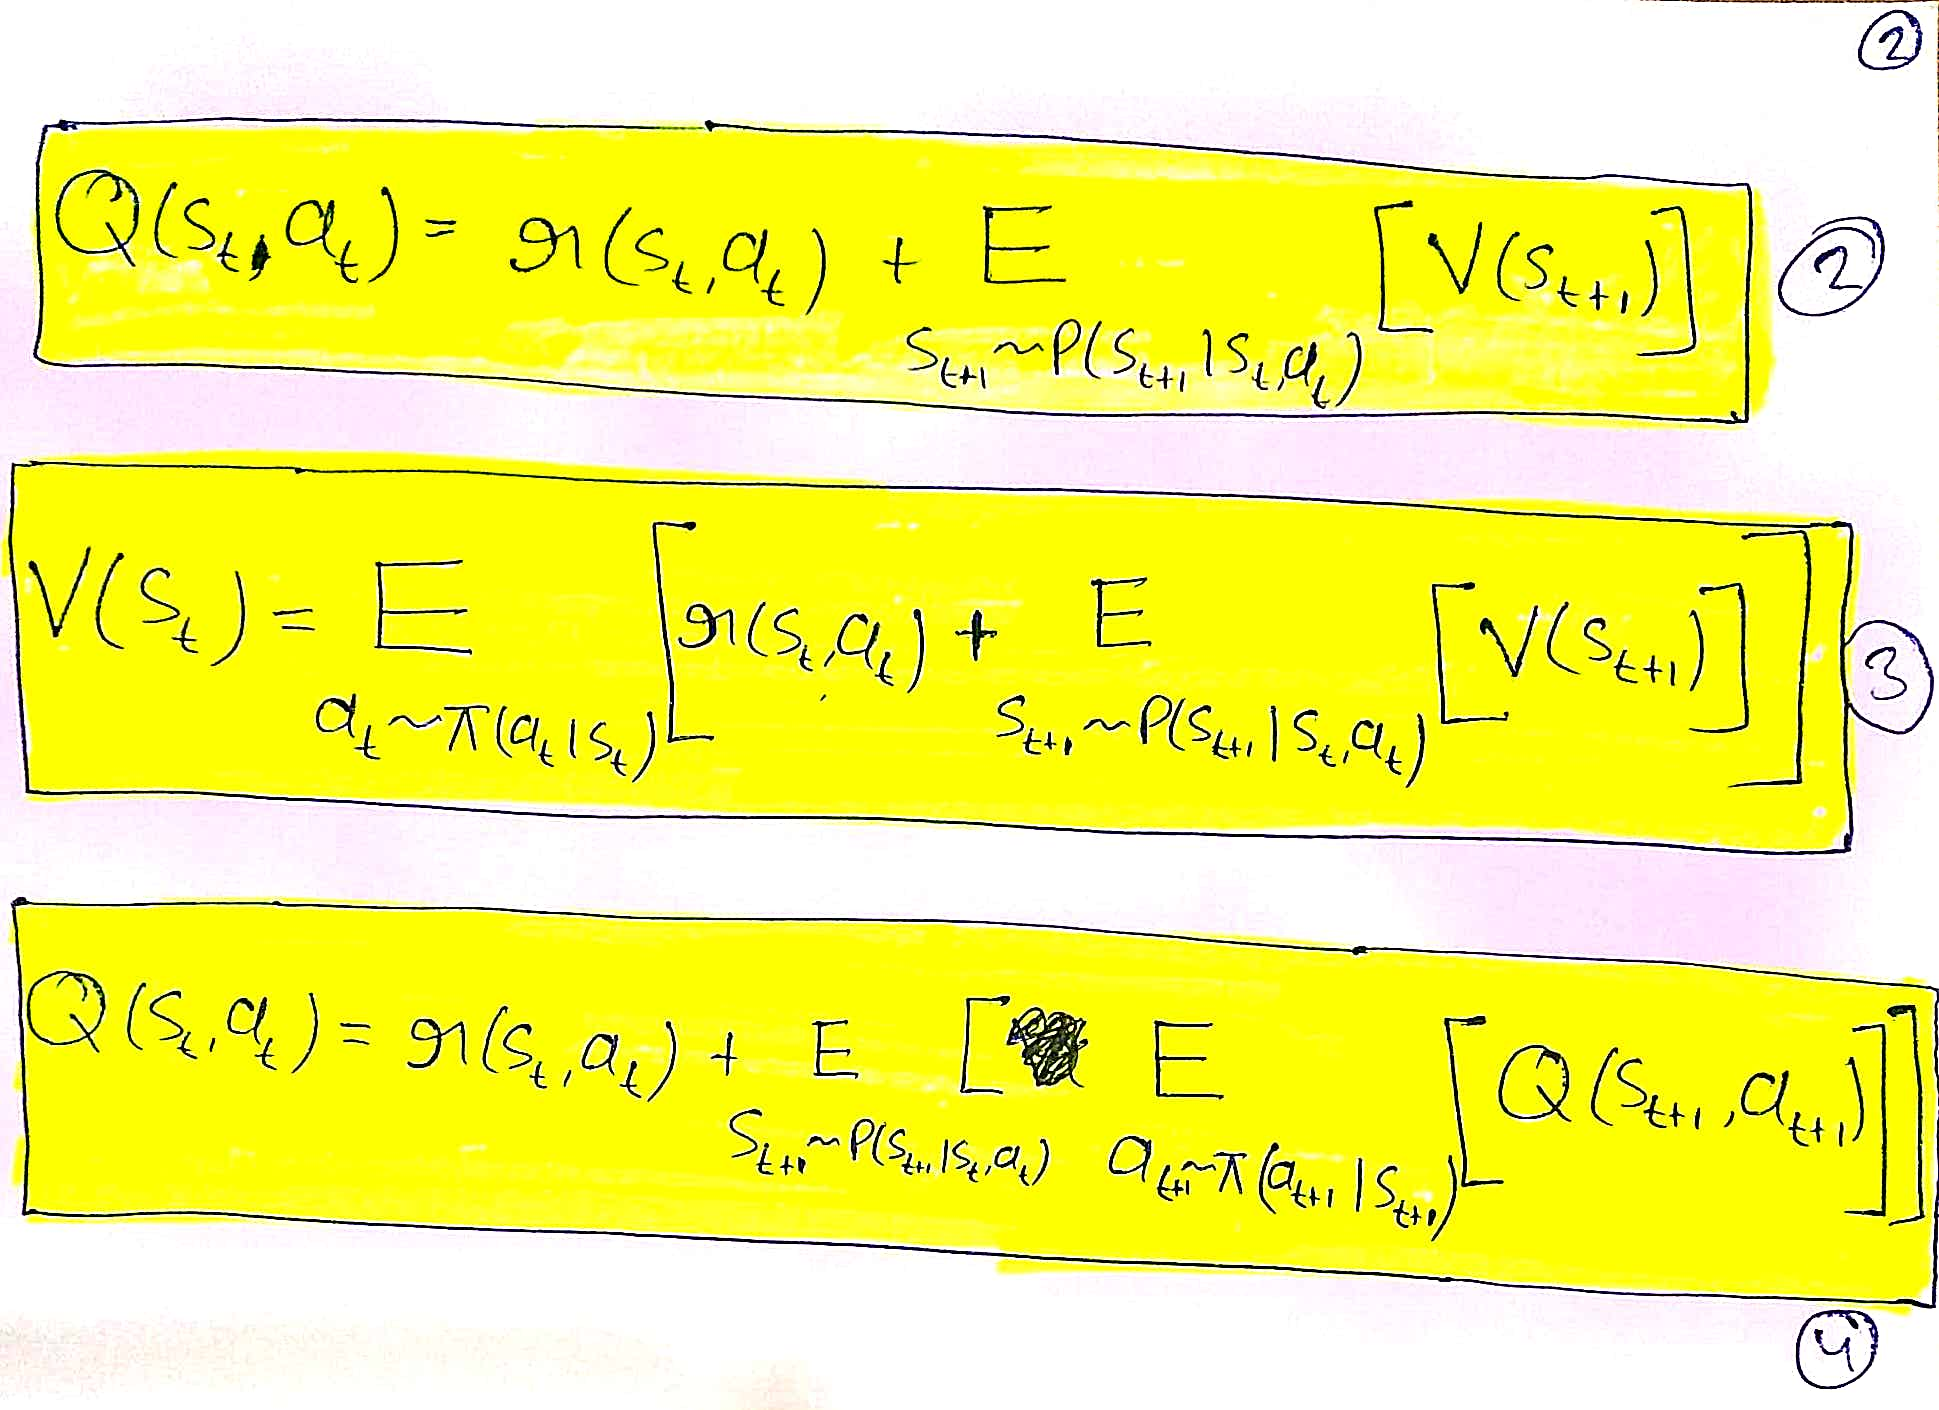 ②
Q(s_t, a_t) = r(s_t, a_t) + E_{s_{t+1} ~ P(s_{t+1} | s_t, a_t)} [V(s_{t+1})] ②
V(s_t) = E_{a_t ~ π(a_t | s_t)} [r(s_t, a_t) + E_{s_{t+1} ~ P(s_{t+1} | s_t, a_t)} [V(s_{t+1})]] ③
Q(s_t, a_t) = r(s_t, a_t) + E_{s_{t+1} ~ P(s_{t+1} | s_t, a_t)} [E_{a_{t+1} ~ π(a_{t+1} | s_{t+1})} [Q(s_{t+1}, a_{t+1})]]
④